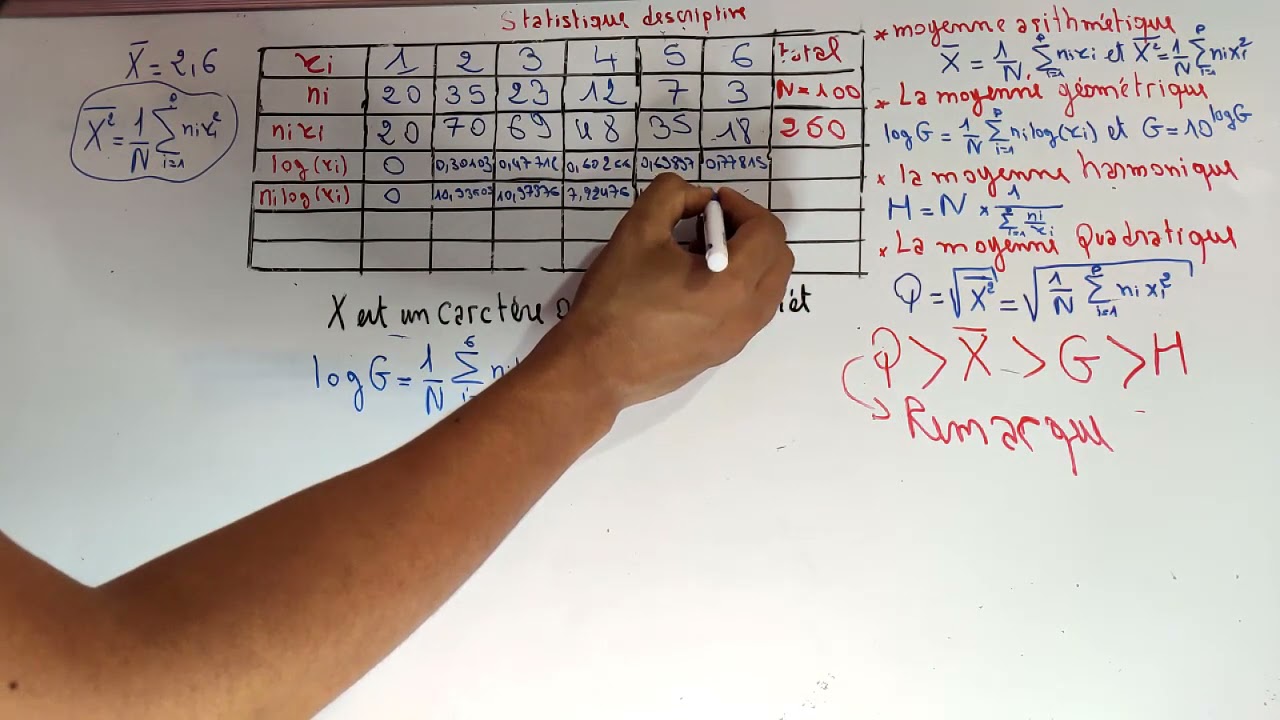 Statistique descriptive
X̄ = 2,6
X̄² = 1/N Σ(i=1..p) nixi²
xi 1 2 3 4 5 6 total
ni 20 35 23 12 7 3 N = 100
nixi 20 70 69 48 35 18 260
log(xi) 0 0,30103 0,47712 0,60206 0,69897 0,77815
ni log(xi) 0 7,92476
X est un carctère
log G = 1/N Σ
* moyenne arithmétique
X̄ = 1/N Σ(i=1..p) nixi et X̄² = 1/N Σ(i=1..p) nixi²
* La moyenne géométrique
log G = 1/N Σ(i=1..p) ni log(xi) et G = 10^logG
* la moyenne harmonique
H = N × 1/(Σ(i=1..p) ni/xi)
* La moyenne Quadratique
Q = √X̄² = √(1/N Σ(i=1..p) nixi²)
Q > X̄ > G > H
Remarque